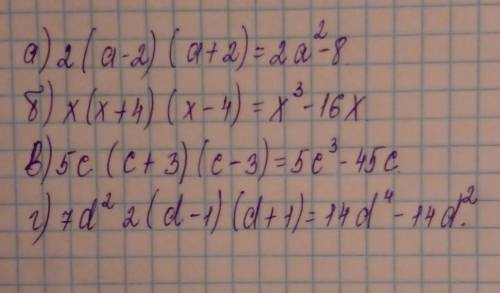 а) 2(a-2)(a+2)=2a²-8
б) x(x+4)(x-4)=x³-16x
в) 5c(c+3)(c-3)=5c³-45c
г) 7d² 2(d-1)(d+1)=14d⁴-14d².